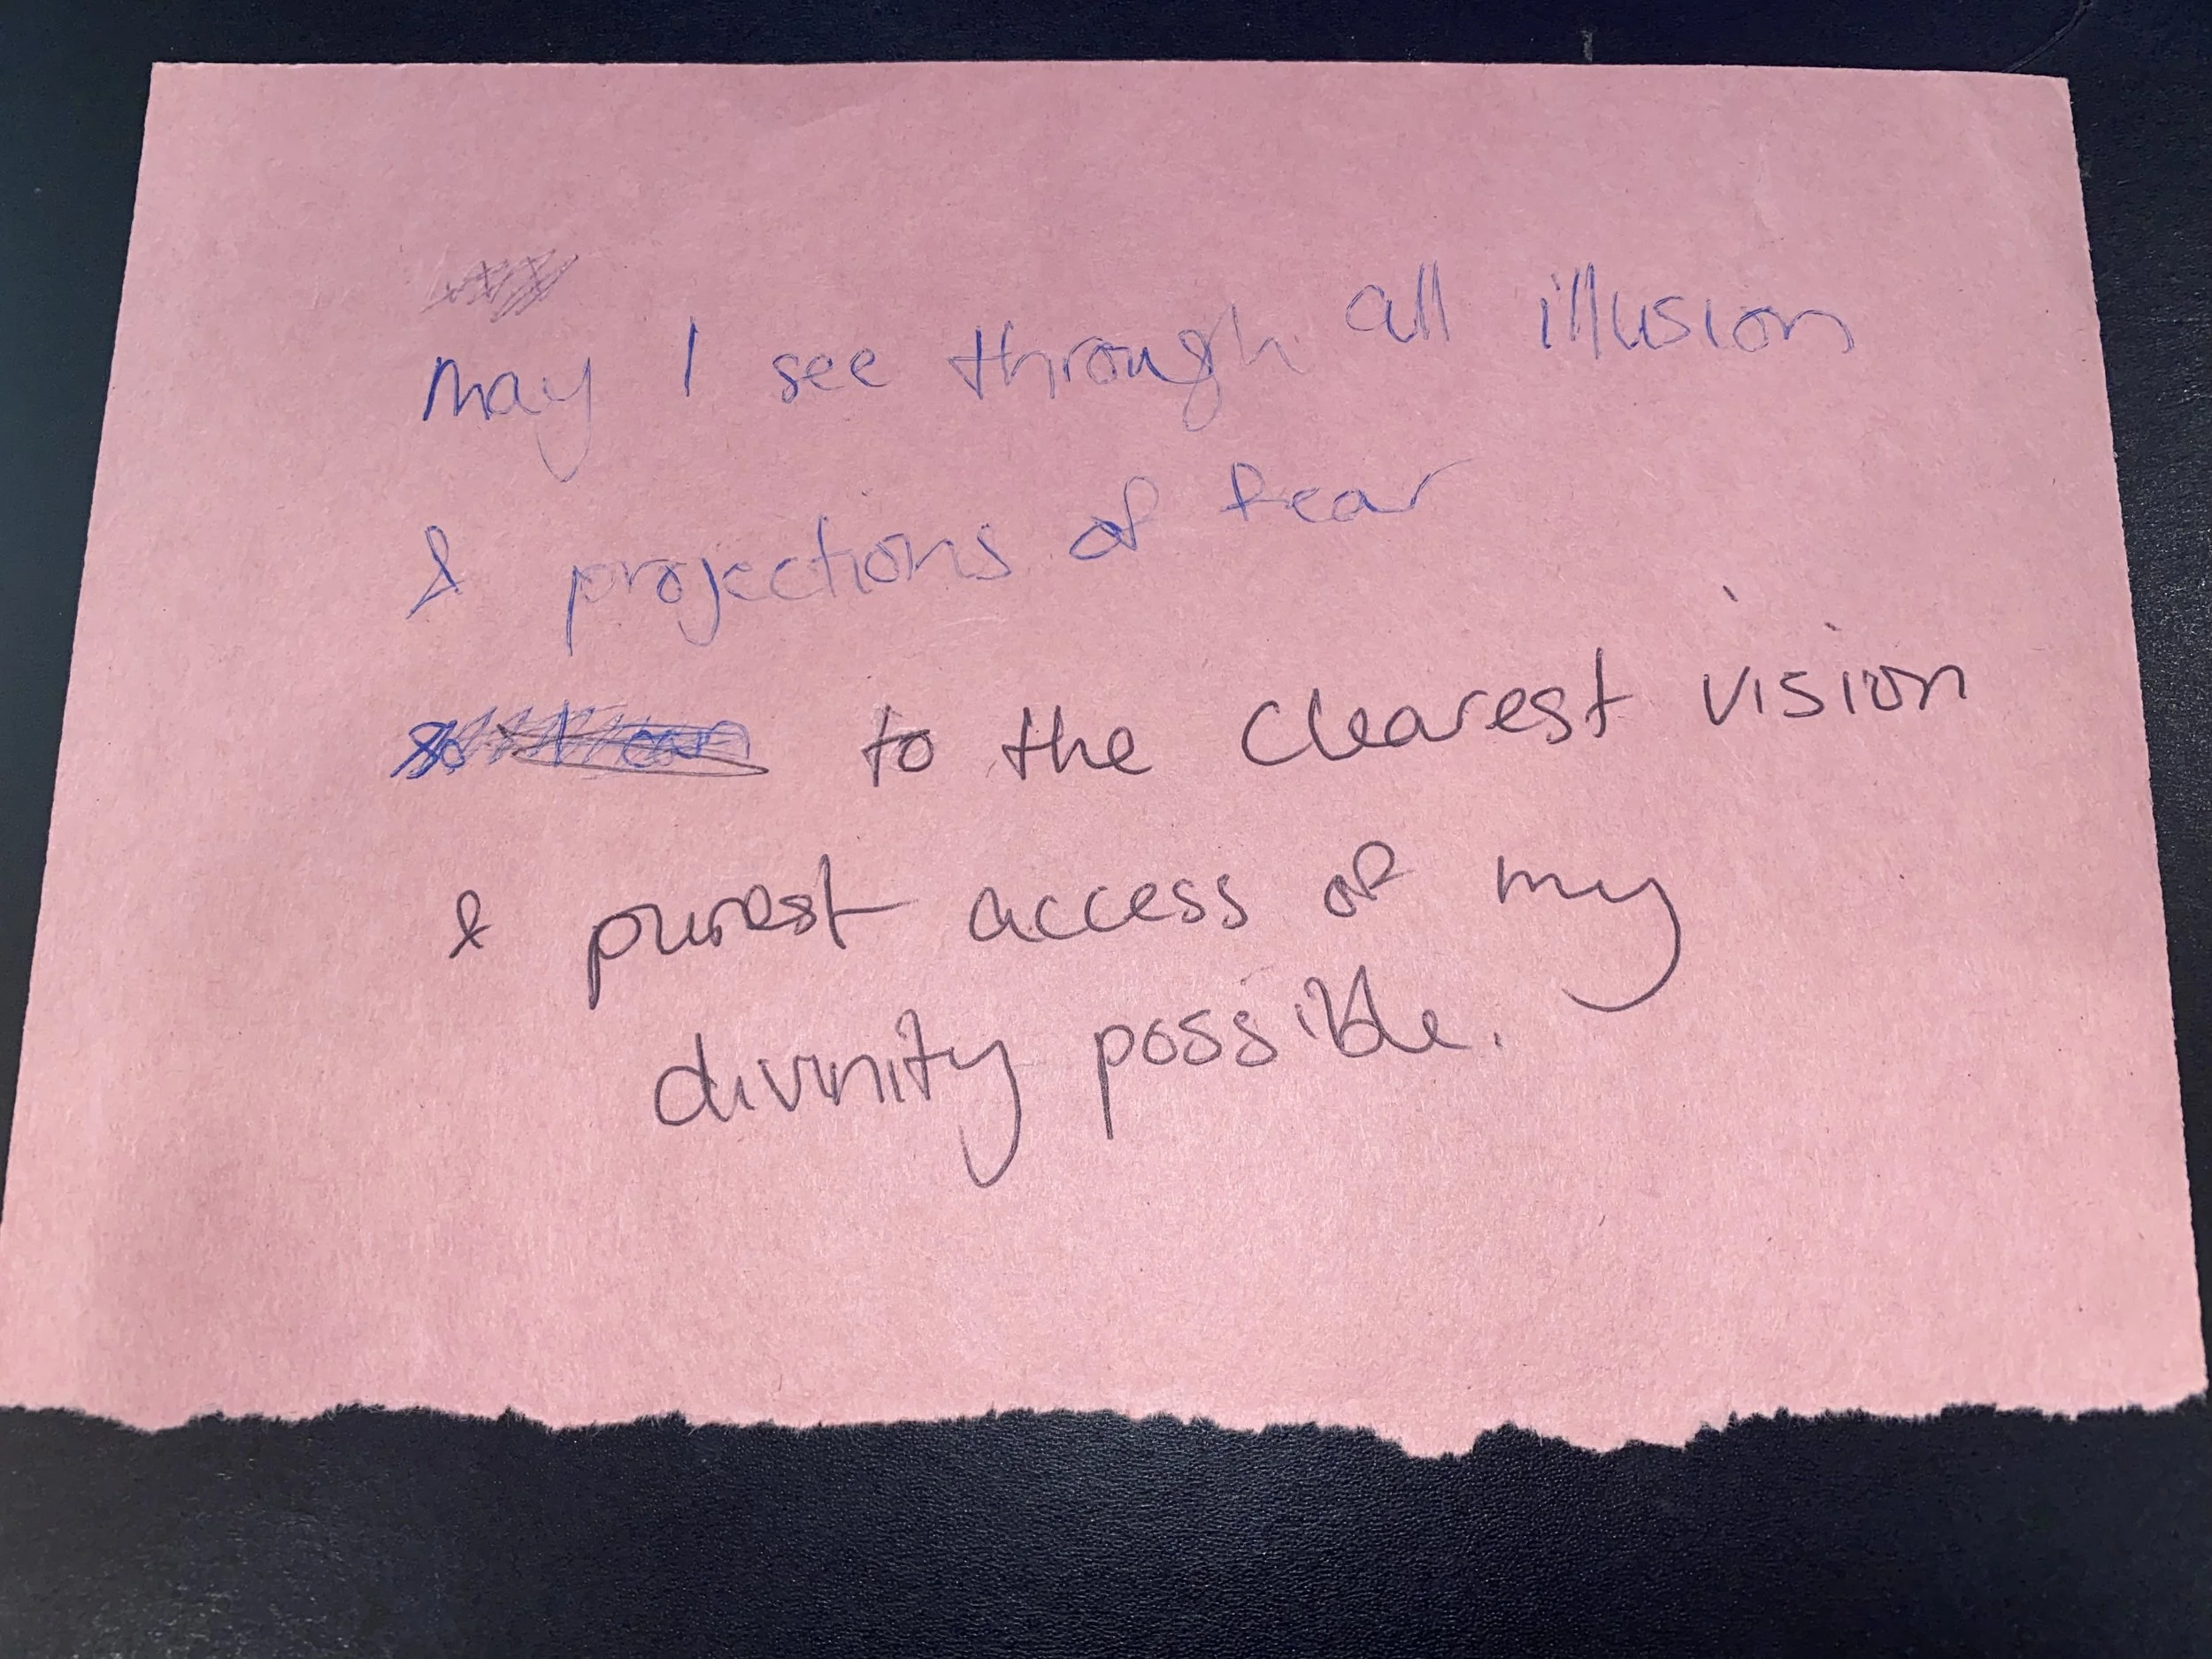 may I see through all illusion
& projections of fear
so I can to the clearest vision
& purest access of my
divinity possible.